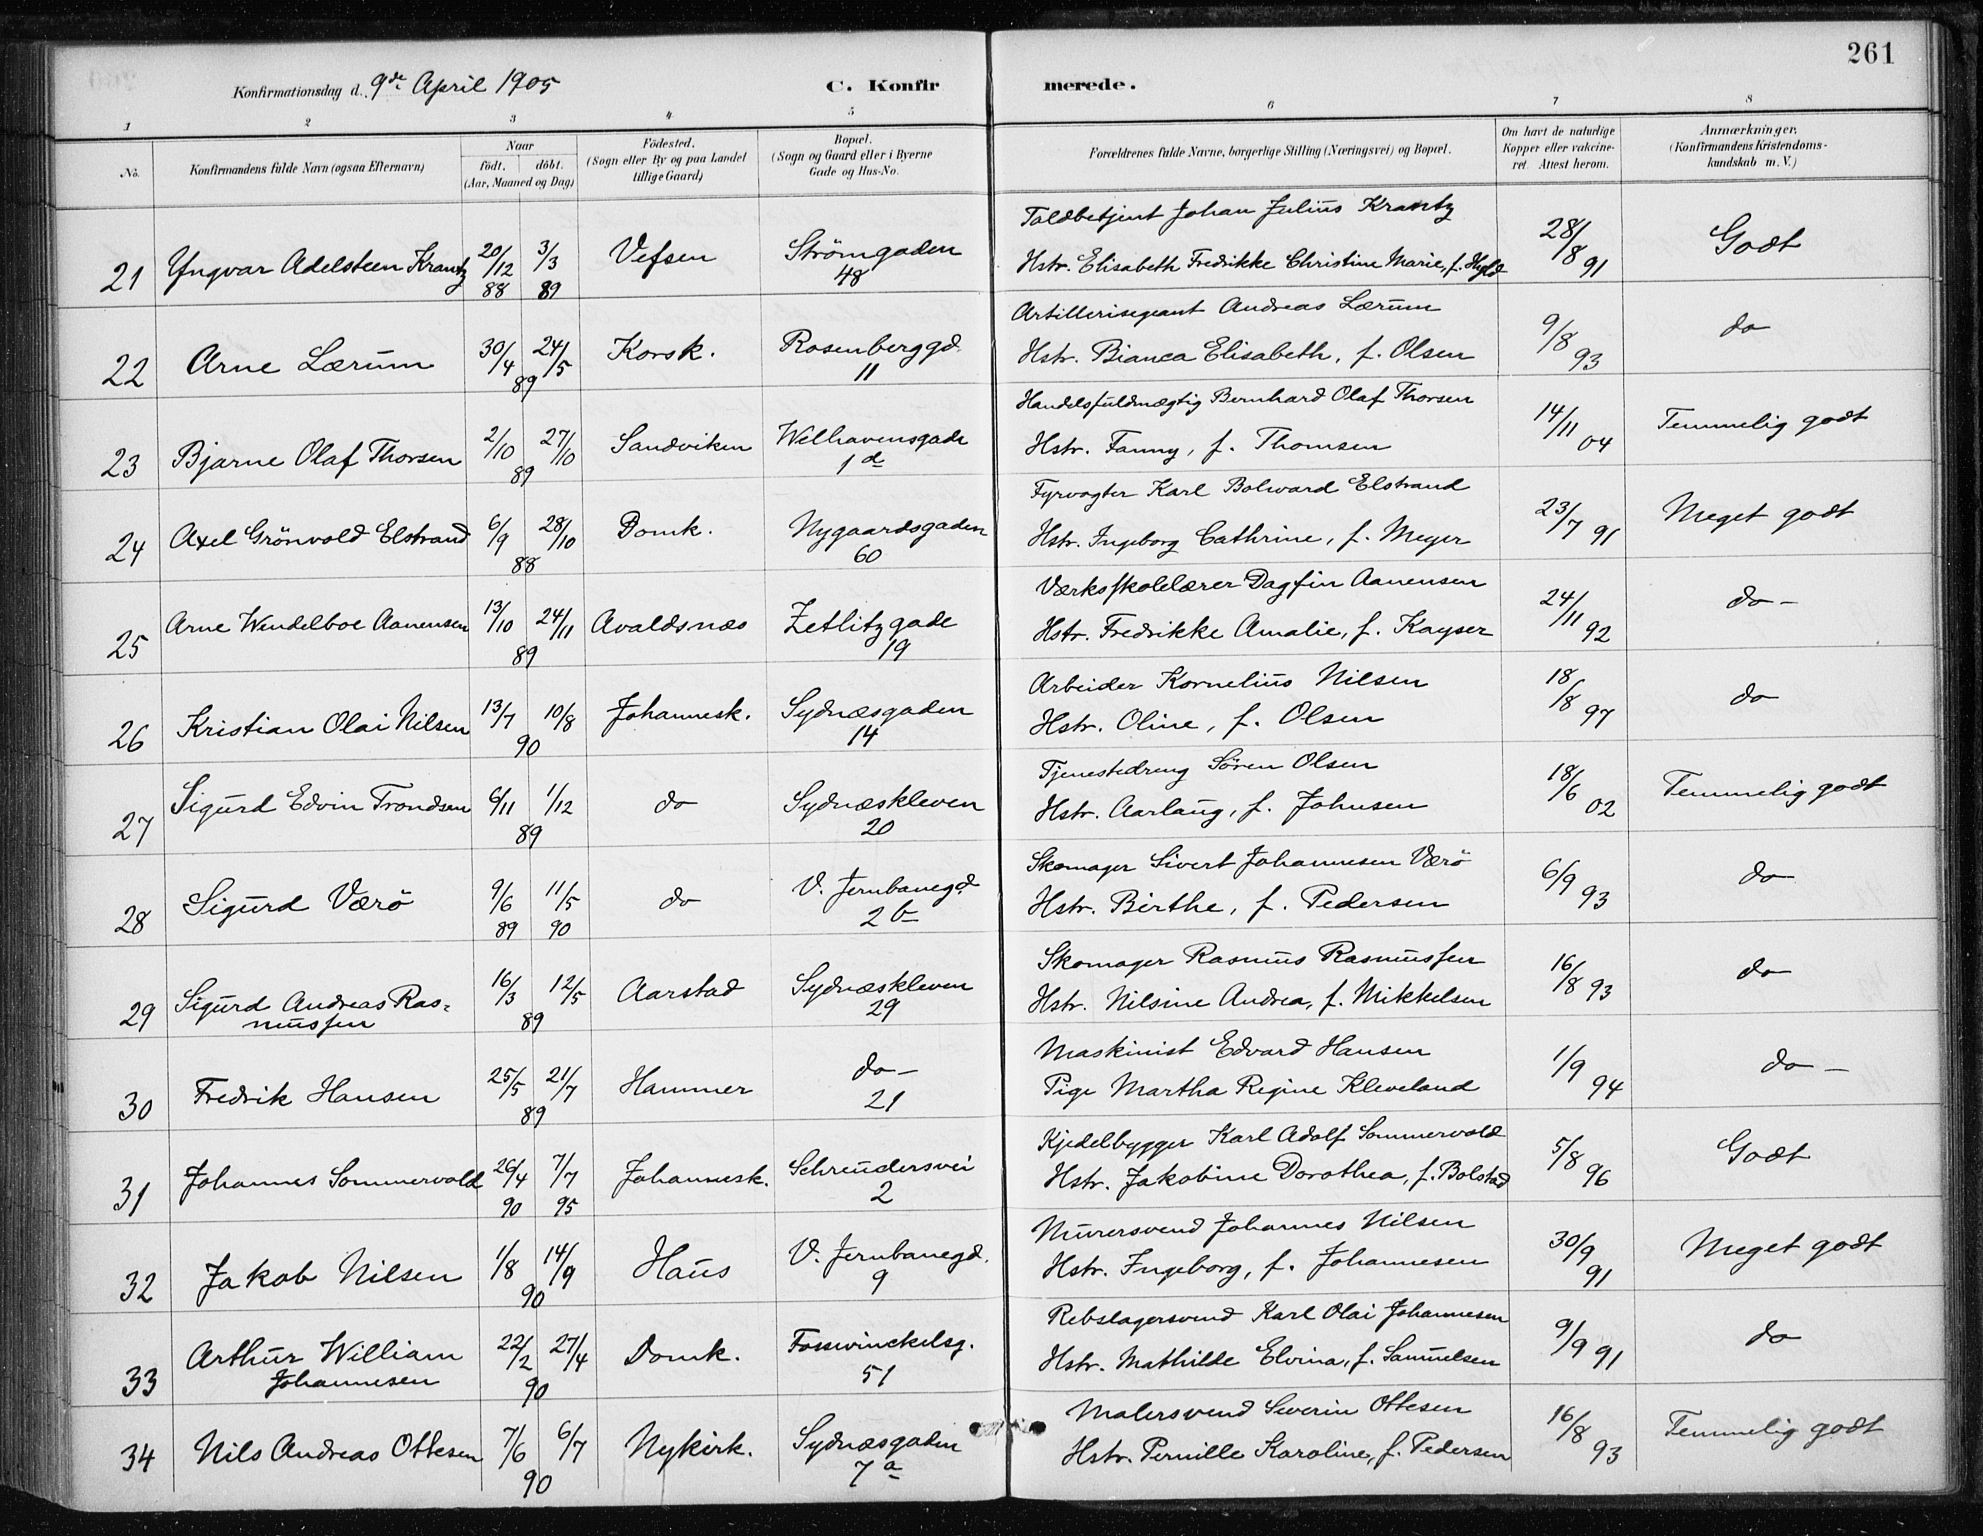 261
Konfirmationsdag d. 9de April 1905
C. Konfirmerede.
1 2 3 4 5 6 7 8
No.
Konfirmandens fulde Navn (ogsaa Efternavn)
Naar
födt. döbt.
(Aar, Maaned og Dag)
Födested.
(Sogn eller By og paa Landet
tillige Gaard)
Bopæl.
(Sogn og Gaard eller i Byerne
Gade og Hus-No.
Forældrenes fulde Navne, borgerlige Stilling (Næringsvei) og Bopæl.
Om havt de naturlige
Kopper eller vakcine-
ret. Attest herom.
Anmærkninger.
(Konfirmandens Kristendoms-
kundskab m. V.)
21 Yngvar Adelsteen Krantz 20/12 88 3/3 89 Vefsen Strömgaden 48
Toldbetjent Johan Julius Krantz
Hstr. Elisabeth Fredrikke Christine Marie, f. 28/8 91 Godt
22 Arne Lærum 30/4 24/5 89 Korsk. Rosenberggd. 11
Artillerisegeant Andreas Lærum
Hstr. Bianca Elisabeth, f. Olsen 9/8 93 do
23 Bjarne Olaf Thorsen 2/10 27/10 89 Sandviken Welhavensgade 1d
Handelsfuldmægtig Bernhard Olaf Thorsen
Hstr. Fanny, f. Thomsen 14/11 04 Temmelig godt
24 Axel Grönvold Elstrand 6/9 28/10 88 Domk. Nygaardsgaden 60
Fyrvogter Karl Bolward Elstrand
Hstr. Ingeborg Cathrine, f. Meyer 23/7 91 Meget godt
25 Arne Wendelboe Aanensen 13/10 24/11 89 Avaldsnæs Zetlitzgade 19
Værksskolelærer Dagfin Aanensen
Hstr. Fredrikke Amalie, f. Kayser 24/11 92 do –
26 Kristian Olai Nilsen 13/7 10/8 90 Johannesk. Sydnæsgaden 14
Arbeider Kornelius Nilsen
Hstr. Oline, f. Olsen 18/8 97 do
27 Sigurd Edvin Trondsen 6/11 1/12 89 do Sydnæskleven 20
Tjenestedreng Sören Olsen
Hstr. Aarlaug, f. Johnsen 18/6 02 Temmelig godt
28 Sigurd Værö 9/6 89 11/5 90 do V. Jernbanegd 2b
Skomager Sivert Johannesen Værö
Hstr. Birthe, f. Pedersen 6/9 93 do
29 Sigurd Andreas Ras-
mussen 16/3 12/5 89 Aarstad Sydnæskleven 29
Skomager Rasmus Rasmussen
Hstr. Nilsine Andrea, f. Mikkelsen 16/8 93 do
30 Fredrik Hansen 25/5 21/7 89 Hammer do – 21
Maskinist Edvard Hansen
Pige Martha Regine Kleveland 1/9 94 do –
31 Johannes Sommervold 26/4 90 7/7 95 Johannesk. Schreudersvei 2
Kjedelbygger Karl Adolf Sommervold
Hstr. Jakobine Dorothea, f. Bolstad 5/8 96 Godt
32 Jakob Nilsen 1/8 14/9 90 Haus V. Jernbanegd. 9
Murersvend Johannes Nilsen
Hstr. Ingeborg, f. Johannesen 30/9 91 Meget godt
33 Arthur William
Johannesen 22/2 27/4 90 Domk. Fosswinckelsg. 51
Rebslagersvend Karl Olai Johannesen
Hstr. Mathilde Elvina, f. Samuelsen 9/9 91 do
34 Nils Andreas Ottesen 7/6 6/7 90 Nykirk. Sydnæsgaden 7a
Malersvend Severin Ottesen
Hstr. Pernille Karoline, f. Pedersen 16/8 93 Temmelig godt